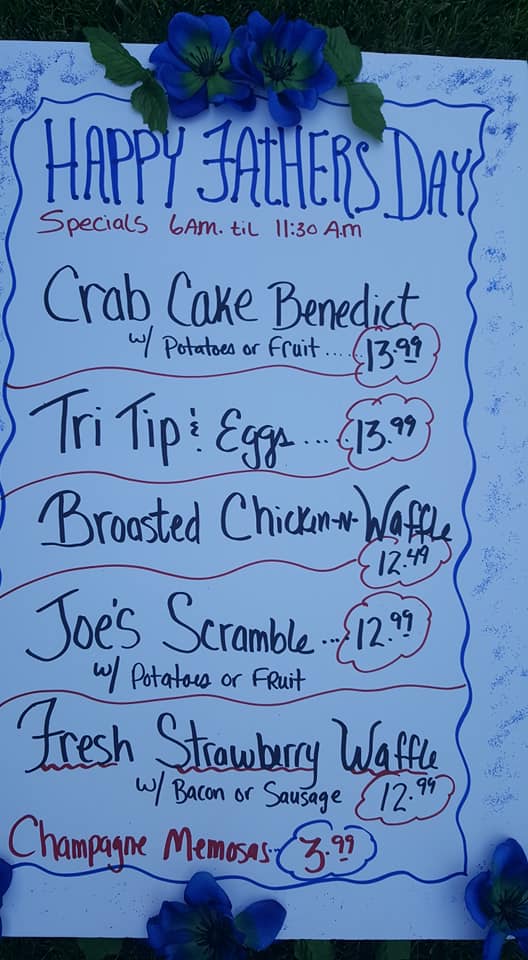 HAPPY FATHERS DAY
Specials 6AM. til 11:30 A.m
Crab Cake Benedict
w/ Potatoes or Fruit..... 13.99
Tri Tip & Eggs.... 13.99
Broasted Chicken-N-Waffle
12.49
Joe's Scramble... 12.99
w/ Potatoes or Fruit
Fresh Strawberry Waffle
w/ Bacon or Sausage 12.99
Champagne Memosas.. 3.99